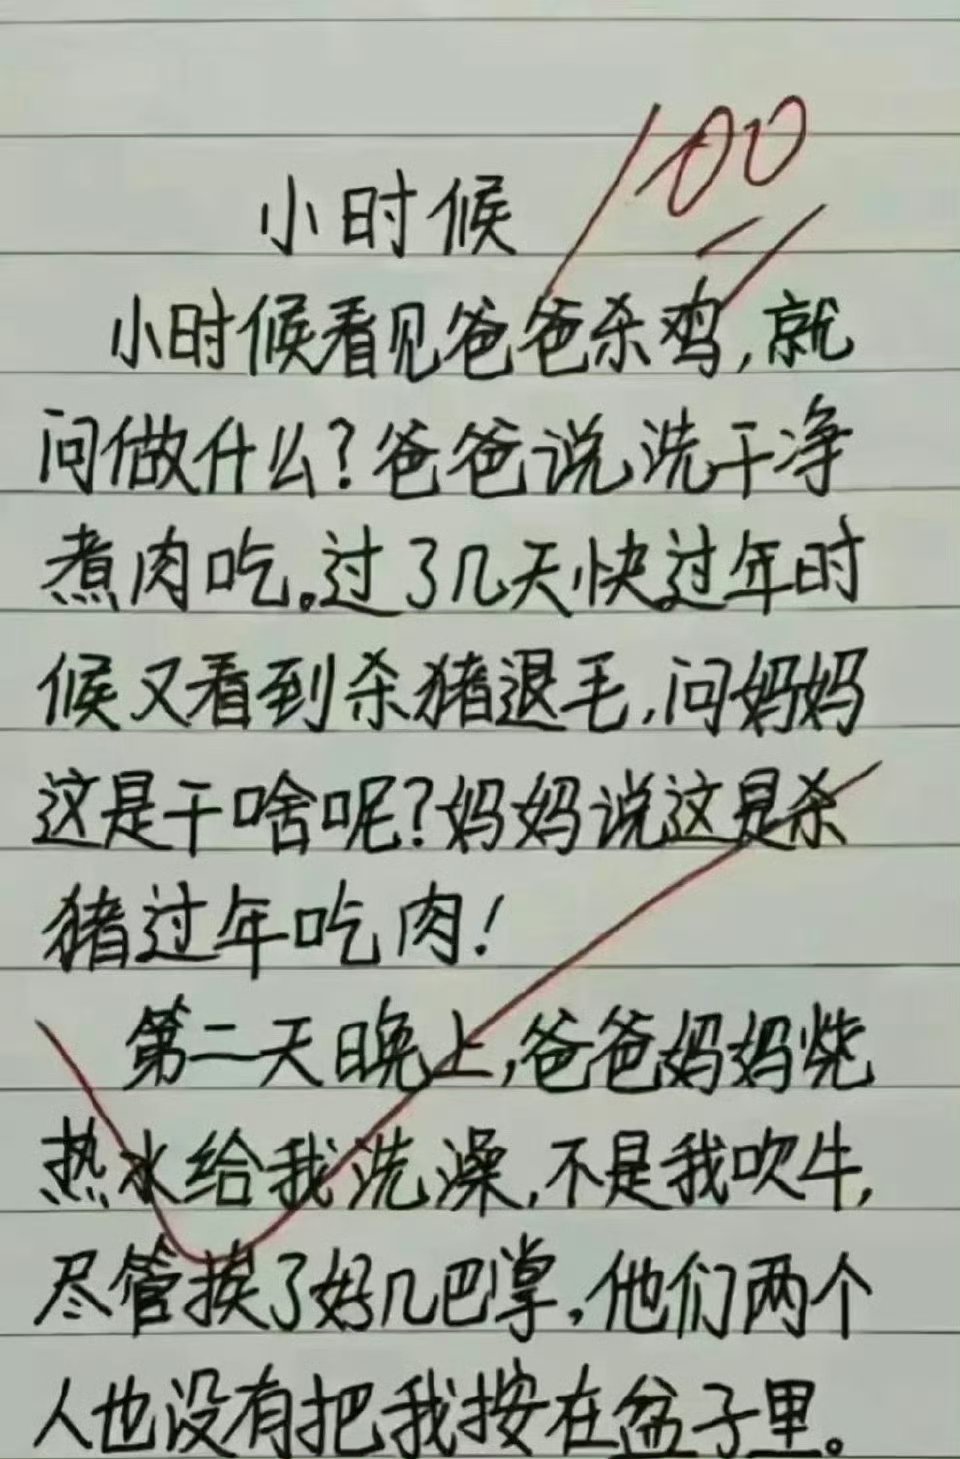 100
小时候
小时候看见爸爸杀鸡,就
问做什么?爸爸说洗干净
煮肉吃。过了几天快过年时
候又看到杀猪退毛,问妈妈
这是干啥呢?妈妈说这是杀
猪过年吃肉!
第二天晚上,爸爸妈妈烧
热水给我洗澡,不是我吹牛,
尽管挨了好几巴掌,他们两个
人也没有把我按在盆子里。